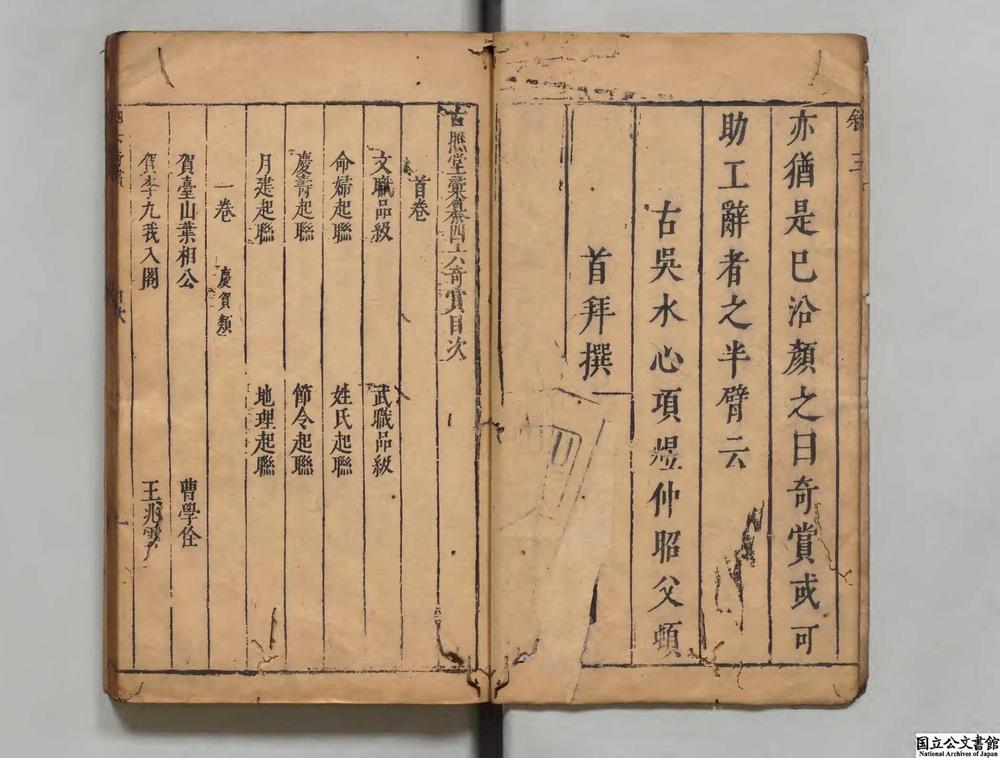 敘 三
亦猶是巳沿顏之曰奇賞或可
助工辭者之半臂云
古吳水心項煜仲昭父頓
首拜撰
古照堂彙纂四六奇賞目次
首卷
文職品級 武職品級
命婦起聯 姓氏起聯
慶壽起聯 節令起聯
月建起聯 地理起聯
一卷 慶賀類
賀臺山葉相公 曹學佺
賀李九我入閣 王兆雲
目次 一
国立公文書館
National Archives of Japan